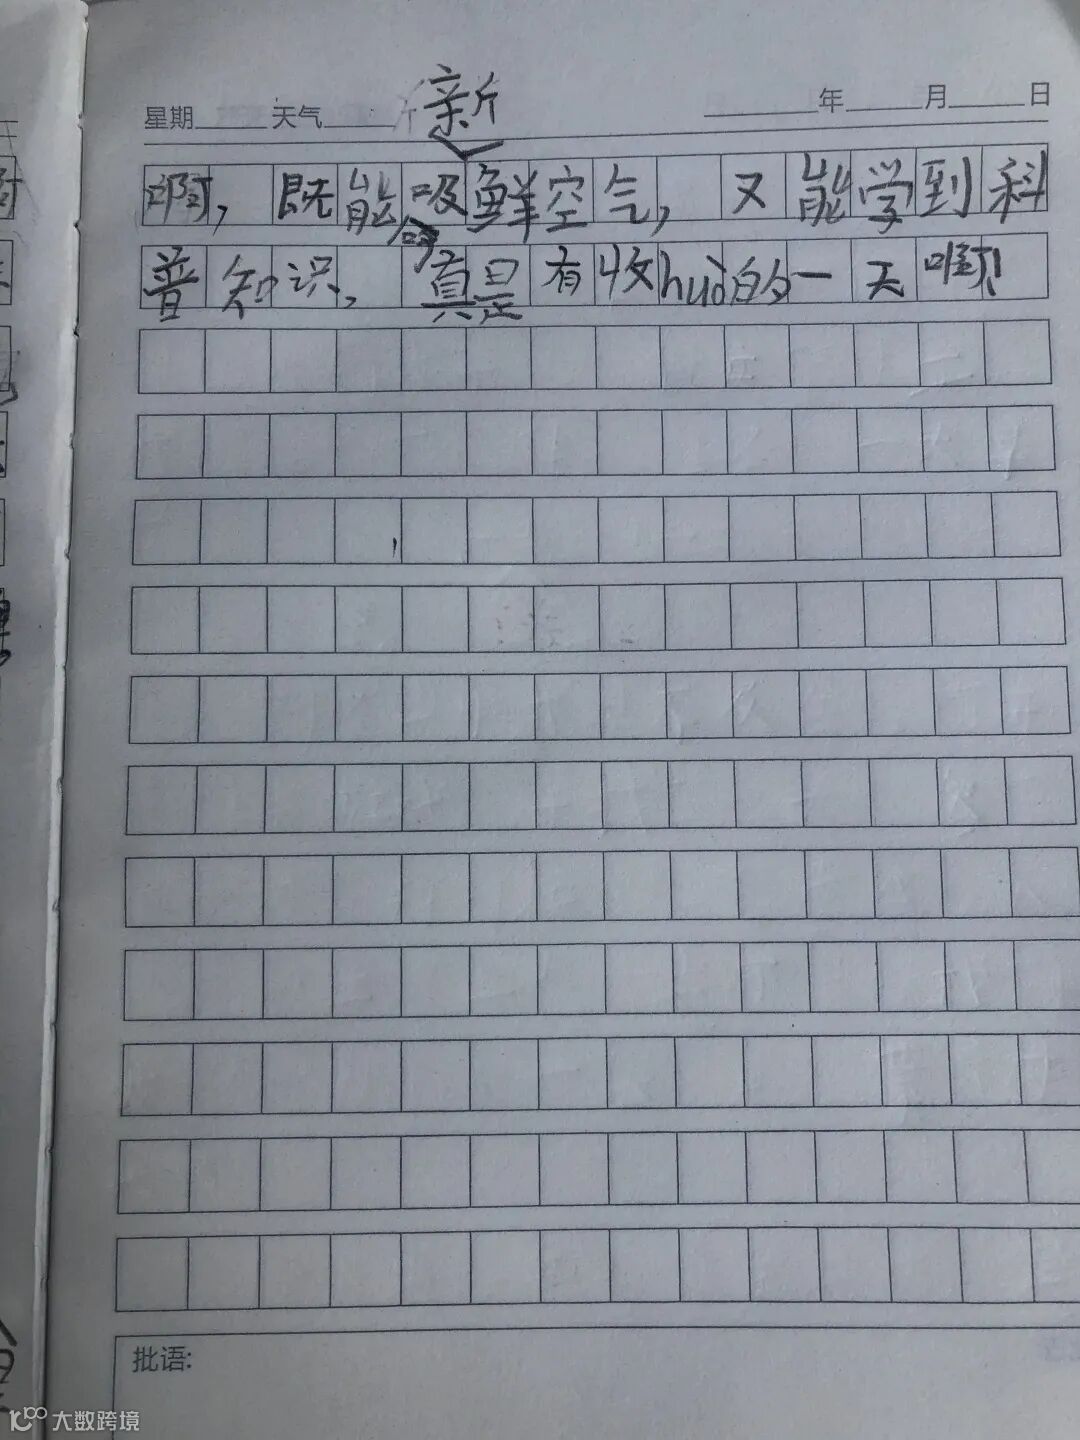 星期 天气 年 月 日
新
啊，既能吸鲜空气，又能学到科
普知识，真是有收huò的一天啊！
批语:
大数跨境